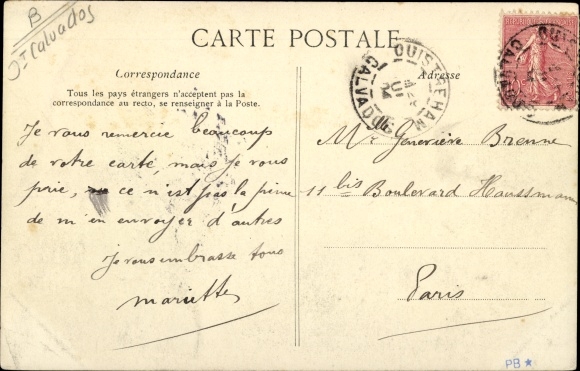 B
Jt Calvados
CARTE POSTALE
Correspondance
Tous les pays étrangers n'acceptent pas la
correspondance au recto, se renseigner à la Poste.
Adresse
OUISTREHAM
CALVADOS
Je vous remercie beaucoup
de votre carte, mais je vous
prie, ce n'est pas la peine
de m'en envoyer d'autres
Je vous embrasse tous
Mariette
Mle Geneviève Brenne
11 bis Boulevard Haussmann
Paris
PB